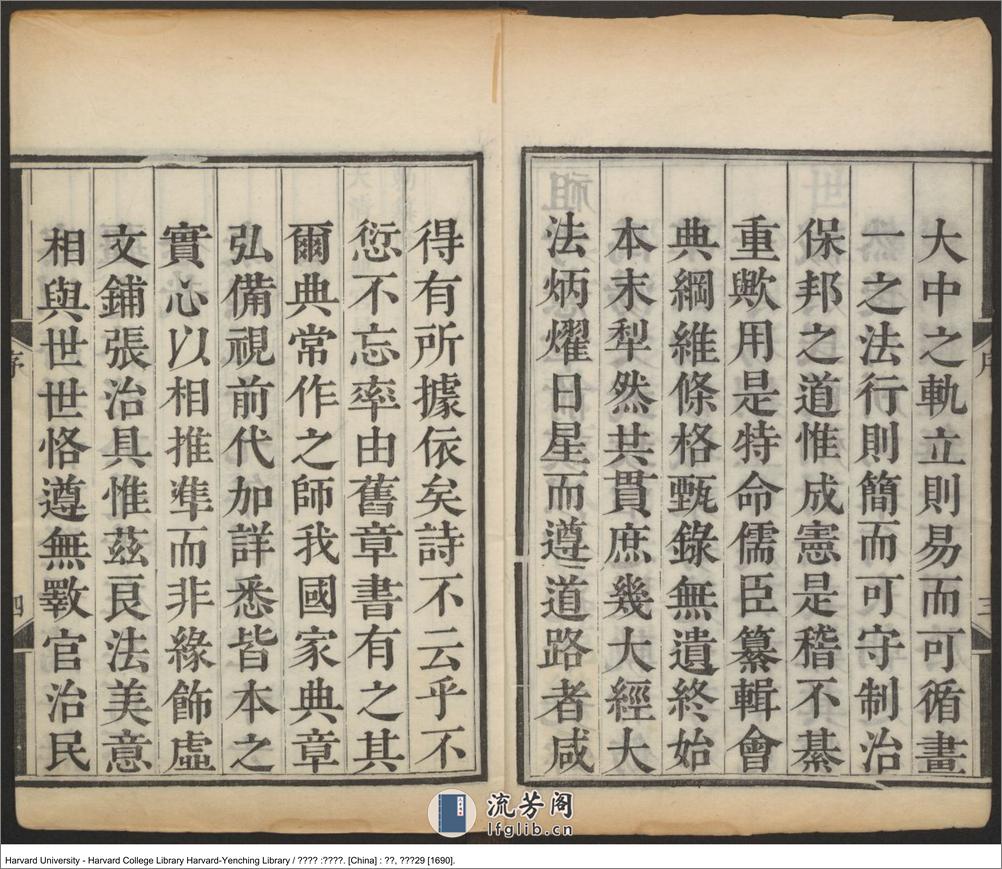 大中之軌立則易而可循畫
一之法行則簡而可守制治
保邦之道惟成憲是稽不綦
重歟用是特命儒臣纂輯會
典綱維條格甄錄無遺終始
本末犁然共貫庶幾大經大
法炳燿日星而遵道路者咸
得有所據依矣詩不云乎不
愆不忘率由舊章書有之其
爾典常作之師我國家典章
弘備視前代加詳悉皆本之
實心以相推準而非緣飾虛
文鋪張治具惟茲良法美意
相與世世恪遵無斁官治民
序
四
流芳阁
lfglib.cn
Harvard University - Harvard College Library Harvard-Yenching Library / ???? :????. [China] : ??, ???29 [1690].